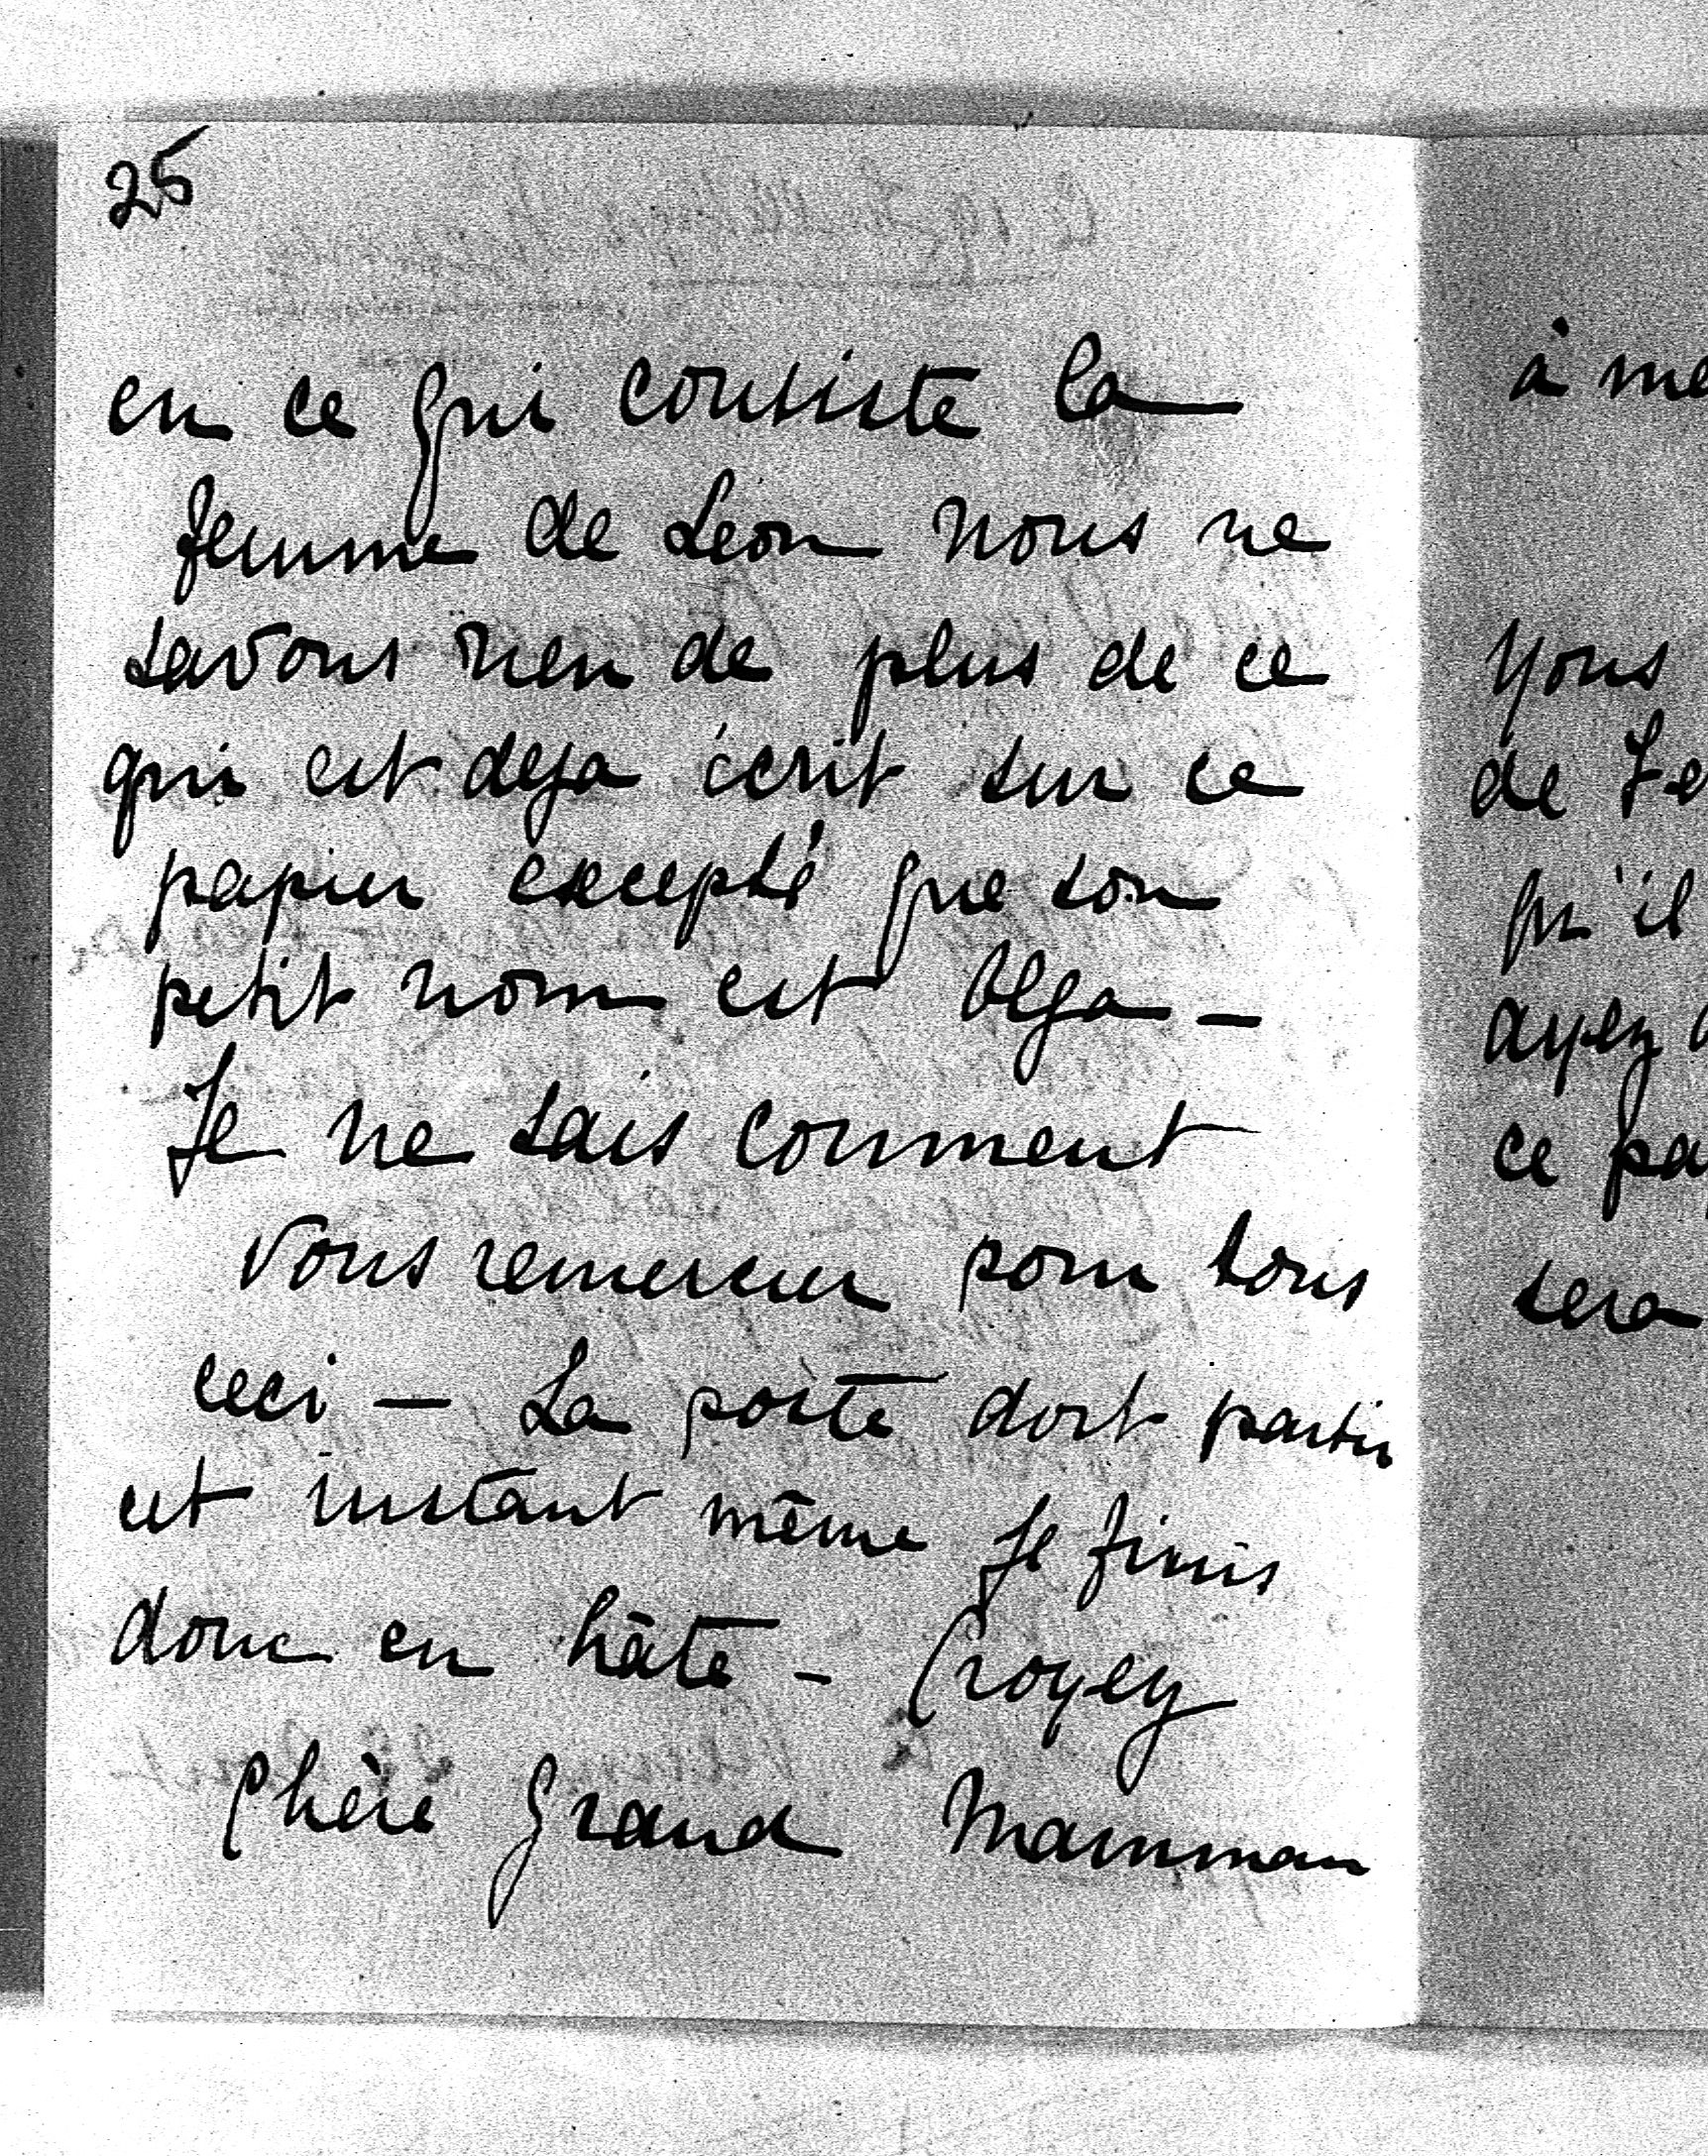 25
en ce qui consiste la
femme de Leon nous ne
savons rien de plus de ce
qui est deja écrit sur ce
papier excepté que son
petit nom est Olga —
Je ne sais comment
vous remercier pour tous
ceci — La poste doit partir
cet instant même Je finis
donc en hâte — Croyez
Chère Grand Mamman
à
Vous
de
qu'il
ayez
ce
sera